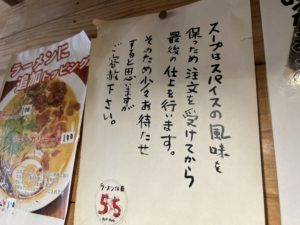 スープはスパイスの風味を
保つため注文を受けてから
最後の仕上を行います。
そのため少々お待たせ
すると思いますが
ご容赦下さい。
ラーメンに
追加トッピング
55